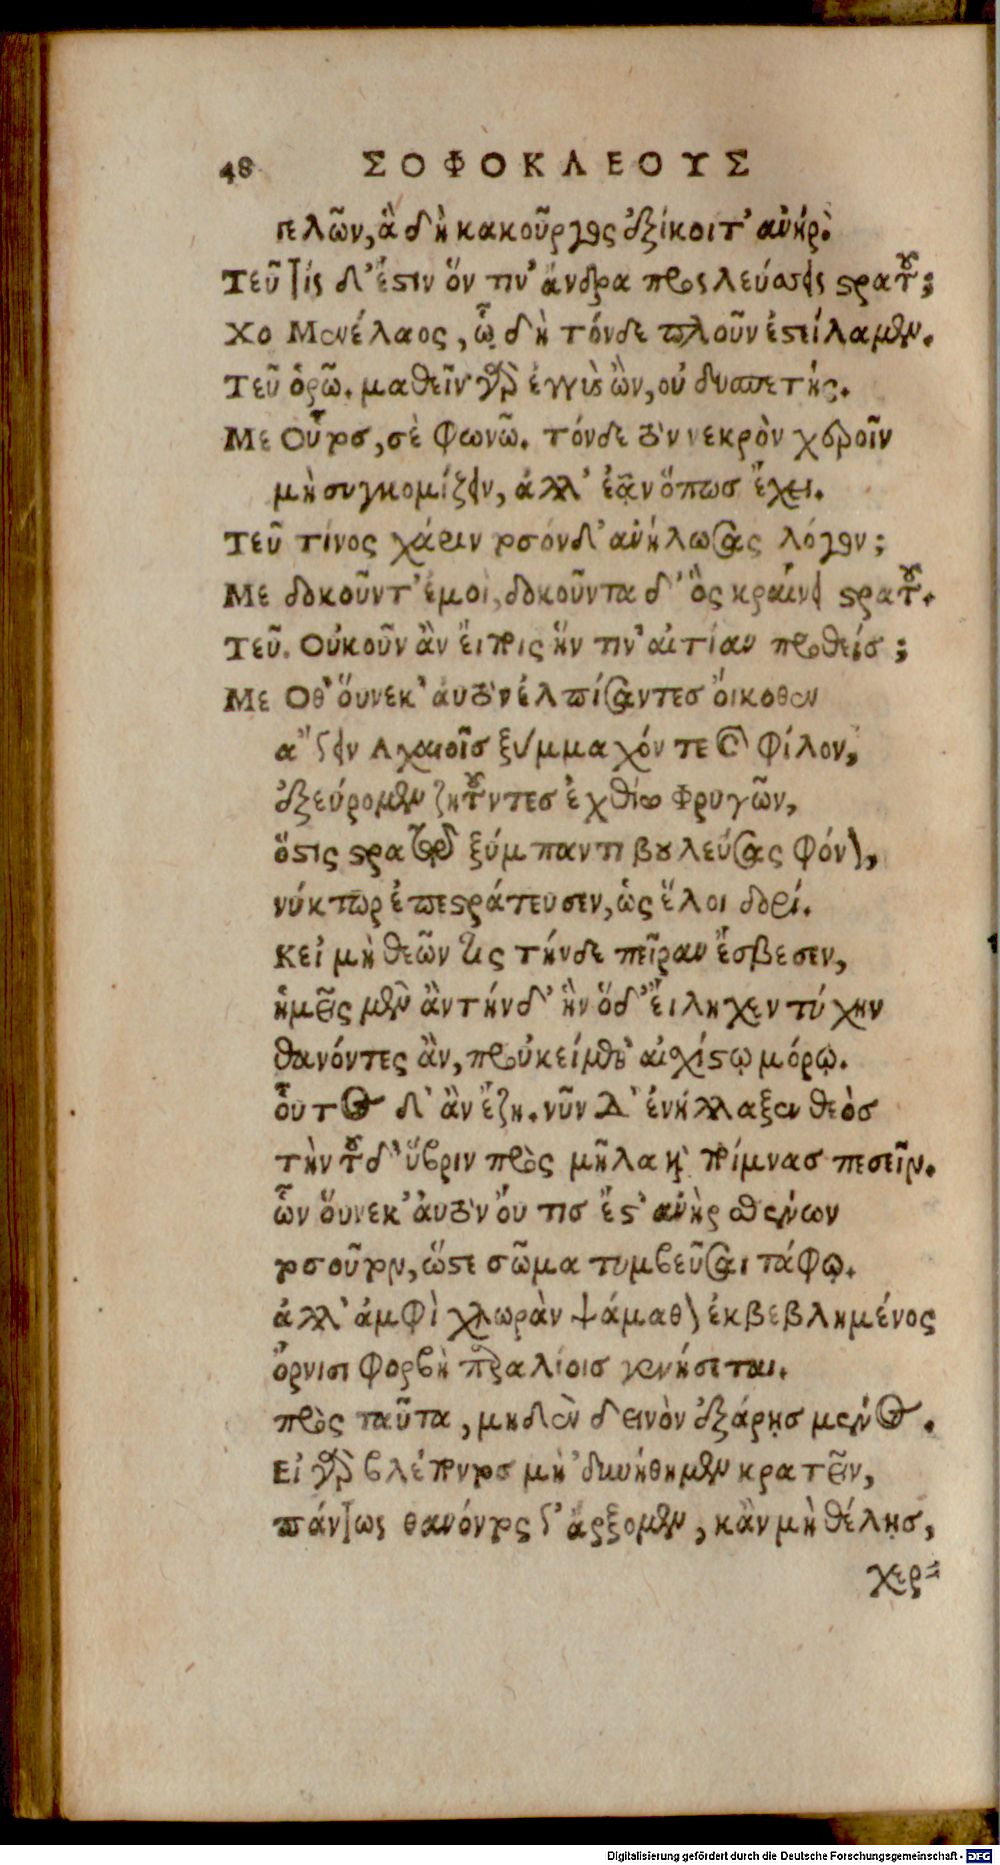 48 ΣΟΦΟΚΛΕΟΥΣ
πελῶν, ἃ δὴ κακοῦργος ἐξίκοιτ' ἀνήρ.
Τεῦ Τίς δ' ἐστιν ὅν τιν' ἄνδρα προσλεύσεις στρατοῦ;
Χο Μενέλαος, ᾧ δὴ τόνδε πλοῦν ἐστείλαμεν.
Τεῦ ὁρῶ. μαθεῖν γὰρ ἐγγὺς ὢν, οὐ δυσπετής.
Με Οὗτος, σὲ φωνῶ. τόνδε τὸν νεκρὸν χεροῖν
μὴ συγκομίζειν, ἀλλ' ἐᾷν ὅπως ἔχει.
Τεῦ τίνος χάριν τοσόνδ' ἀνήλωσας λόγον;
Με δοκοῦντ' ἐμοὶ, δοκοῦντα δ' ὃς κραίνει στρατοῦ.
Τεῦ. Οὐκοῦν ἂν εἴποις ἥν τιν' αἰτίαν προθείς;
Με Οθ' ὅυνεκ' ἀυτὸν ἐλπίσαντες ὄικοθεν
ἄγειν Αχαιοῖς ξύμμαχόν τε καὶ φίλον,
ἐξεύρομεν ζητοῦντες ἐχθίω Φρυγῶν,
ὅστις στρατῷ ξύμπαντι βουλεύσας φόνον,
νύκτωρ ἐπεστράτευσεν, ὡς ἕλοι δορί.
Κεἰ μὴ θεῶν τις τήνδε πεῖραν ἔσβεσεν,
ἡμεῖς μὲν ἂν τήνδ' ἣν ὅδ' ἔιληχεν τύχην
θανόντες ἂν, προὐκείμεθ' αἰχίστῳ μόρῳ.
οὗτος δ' ἂν ἔζη. νῦν δ' ἐνήλλαξεν θεὸς
τὴν τοῦδ' ὕβριν πρὸς μῆλα καὶ ποίμνας πεσεῖν.
ὧν ὅυνεκ' ἀυτὸν ὄυ τις ἔστ' ἀνὴρ σθένων
τοσοῦτον, ὥστε σῶμα τυμβεῦσαι τάφῳ.
ἀλλ' ἀμφὶ χλωρὰν ψάμαθον ἐκβεβλημένος
ὄρνισι φορβὴ παραλίοις γενήσεται.
πρὸς ταῦτα, μηδὲν δεινὸν ἐξάρῃς μένος.
Εἰ γὰρ βλέποντος μὴ 'δυνήθημεν κρατεῖν,
πάντως θανόντος γ' ἄρξομεν, κἂν μὴ θέλῃς,
χερ-
Digitalisierung gefördert durch die Deutsche Forschungsgemeinschaft - DFG